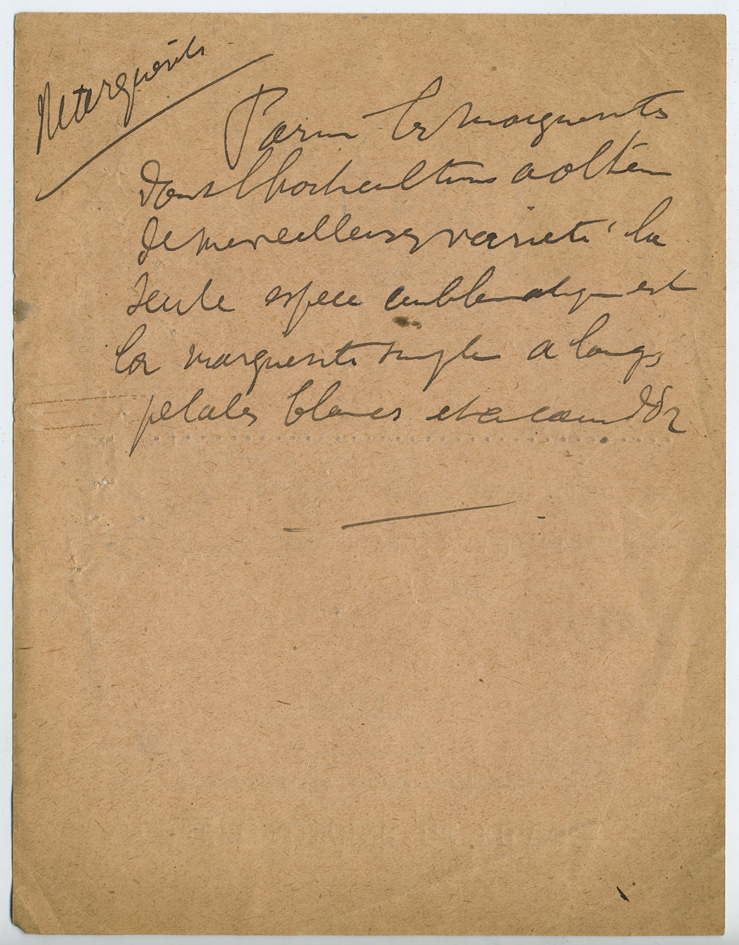 Marguerites
Parmi les marguerites
dont l'horticulture a obtenu
de merveilleuses variété la
seule espece emblematique est
la marguerite simple a longs
petales blancs et a coeur d'or